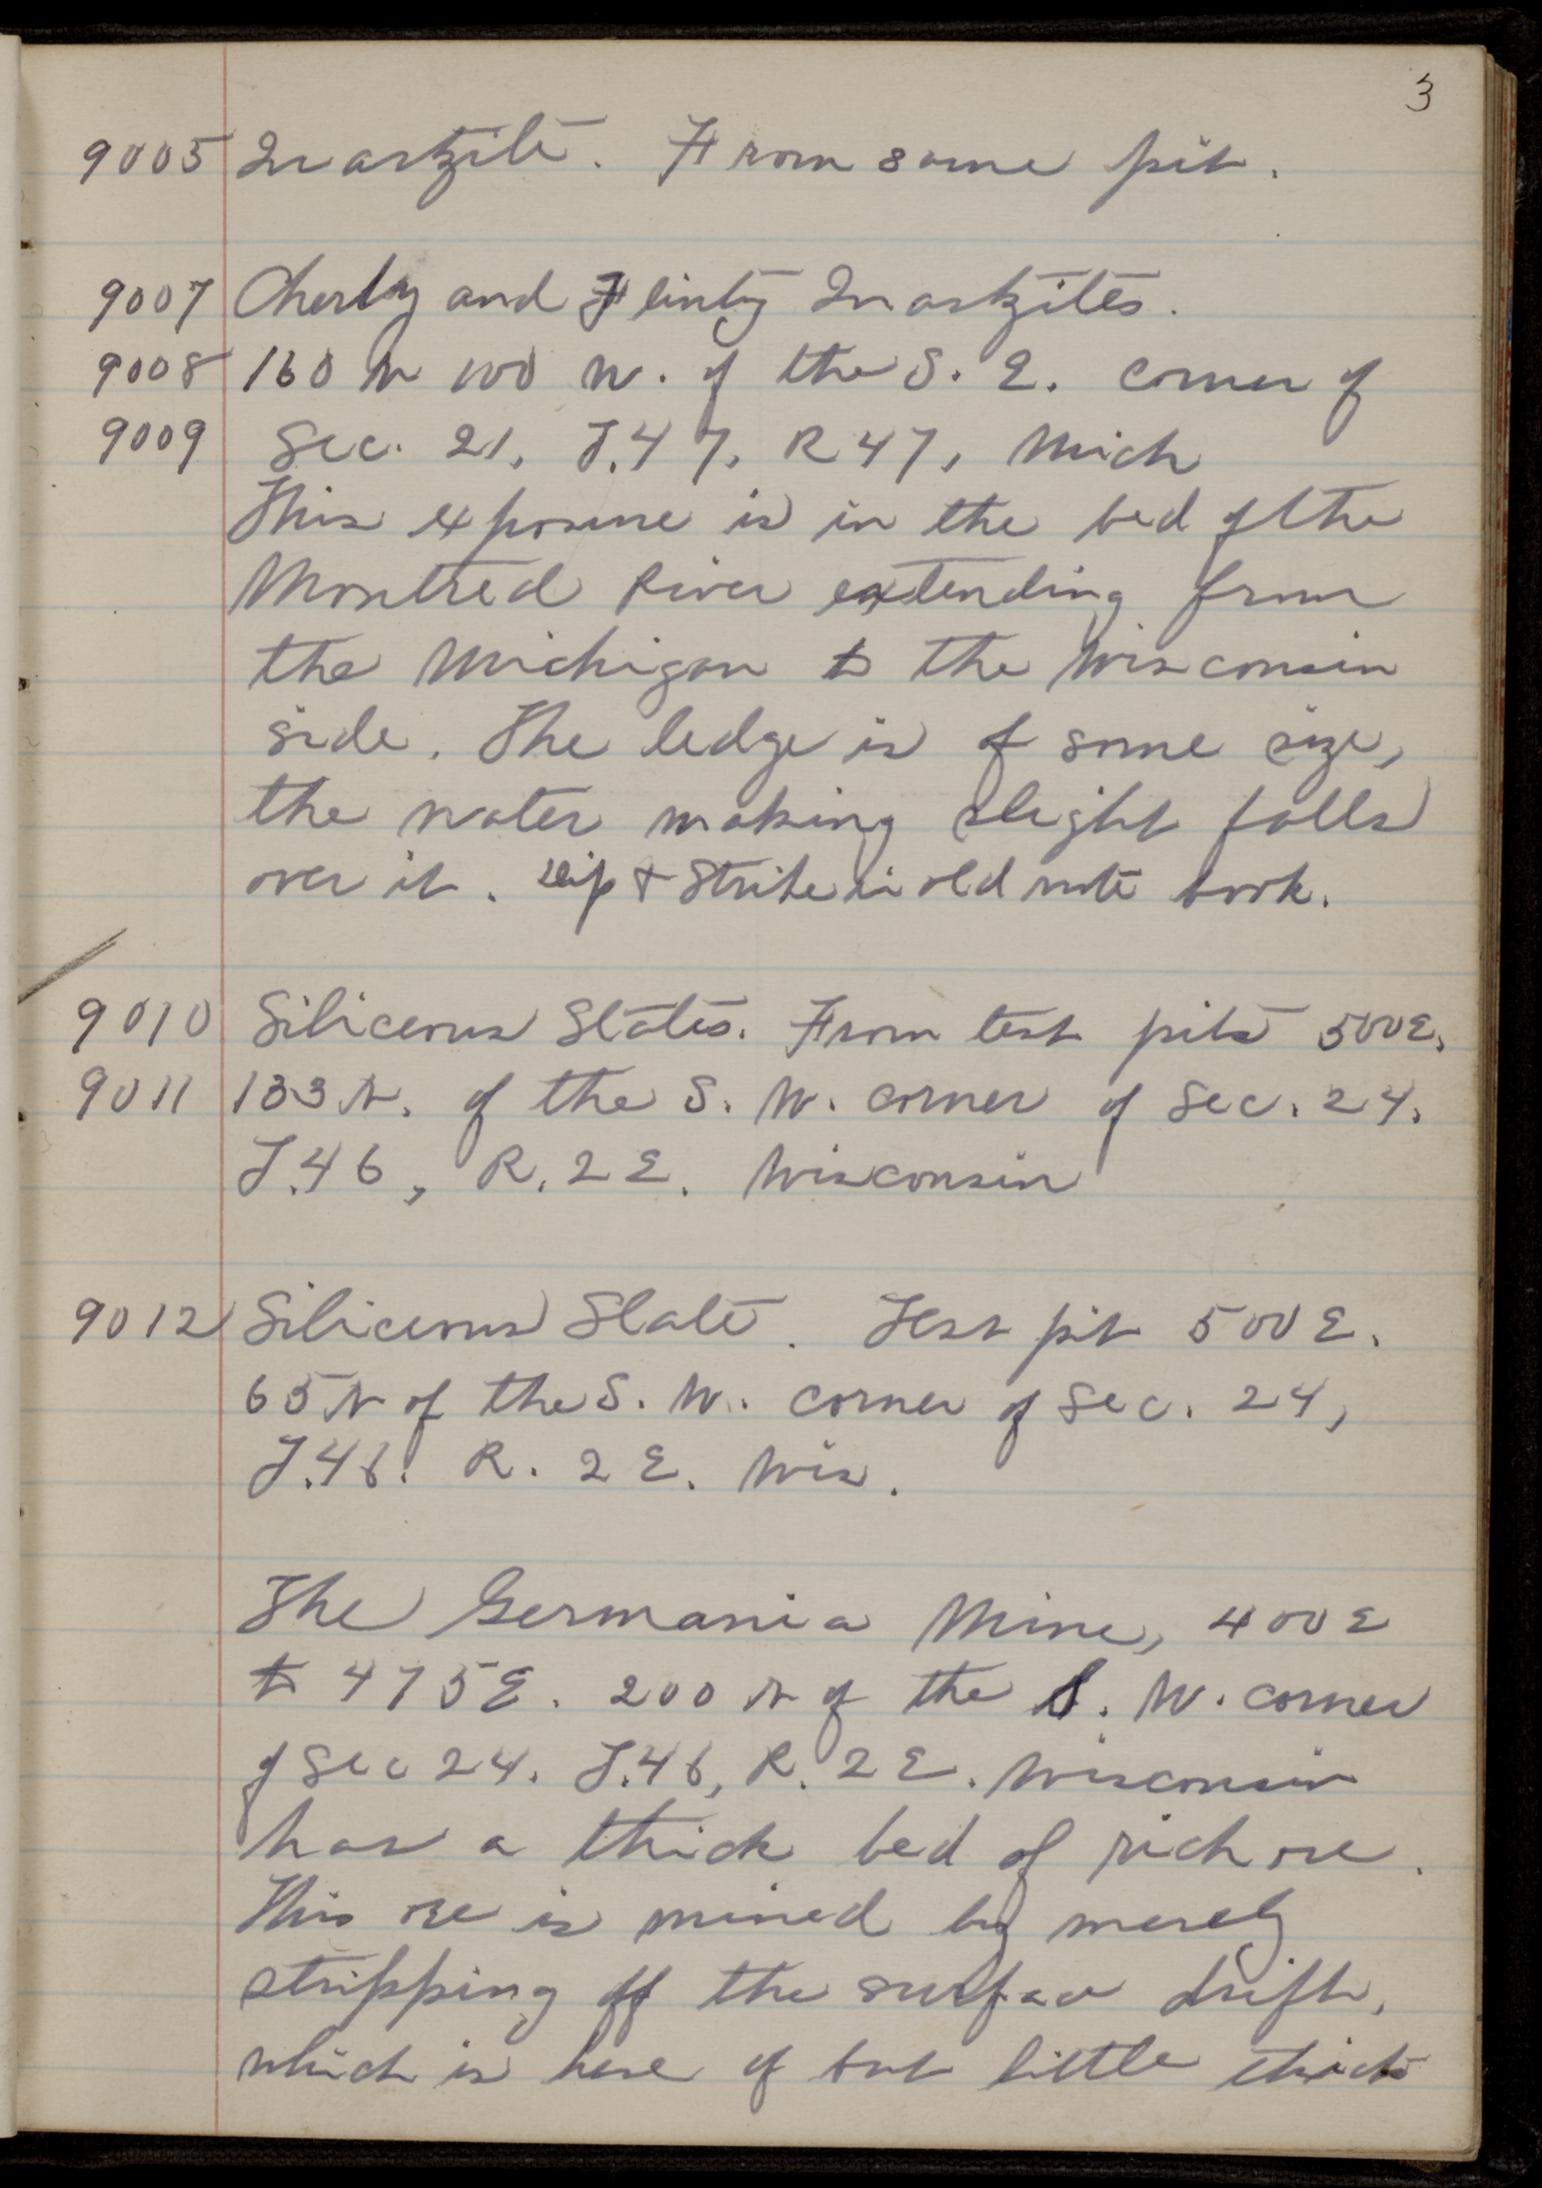 3
9005 Quartzite. From same pit.
9007 Cherty and Flinty Quartzites.
9008 160 N 100 W. of the S. E. corner of
9009 Sec. 21, T.47, R 47, Mich
This exposure is in the bed of the
Montreal River extending from
the Michigan to the Wisconsin
side. The ledge is of some size,
the water making slight falls
over it. Dip & Strike in old note book.
9010 Silicerous Slates. From test pits 500E,
9011 133 N. of the S. W. corner of Sec. 24.
T.46, R. 2 E. Wisconsin
9012 Silicerous Slate. Test pit 500 E.
65 N of the S. W. corner of Sec. 24,
T.46. R. 2 E. Wis.
The Germania Mine, 400 E
to 475 E. 200 N of the S. W. corner
of Sec 24. T.46, R. 2 E. Wisconsin
has a thick bed of rich ore.
This ore is mined by merely
stripping off the surface drift,
which is here of but little thick